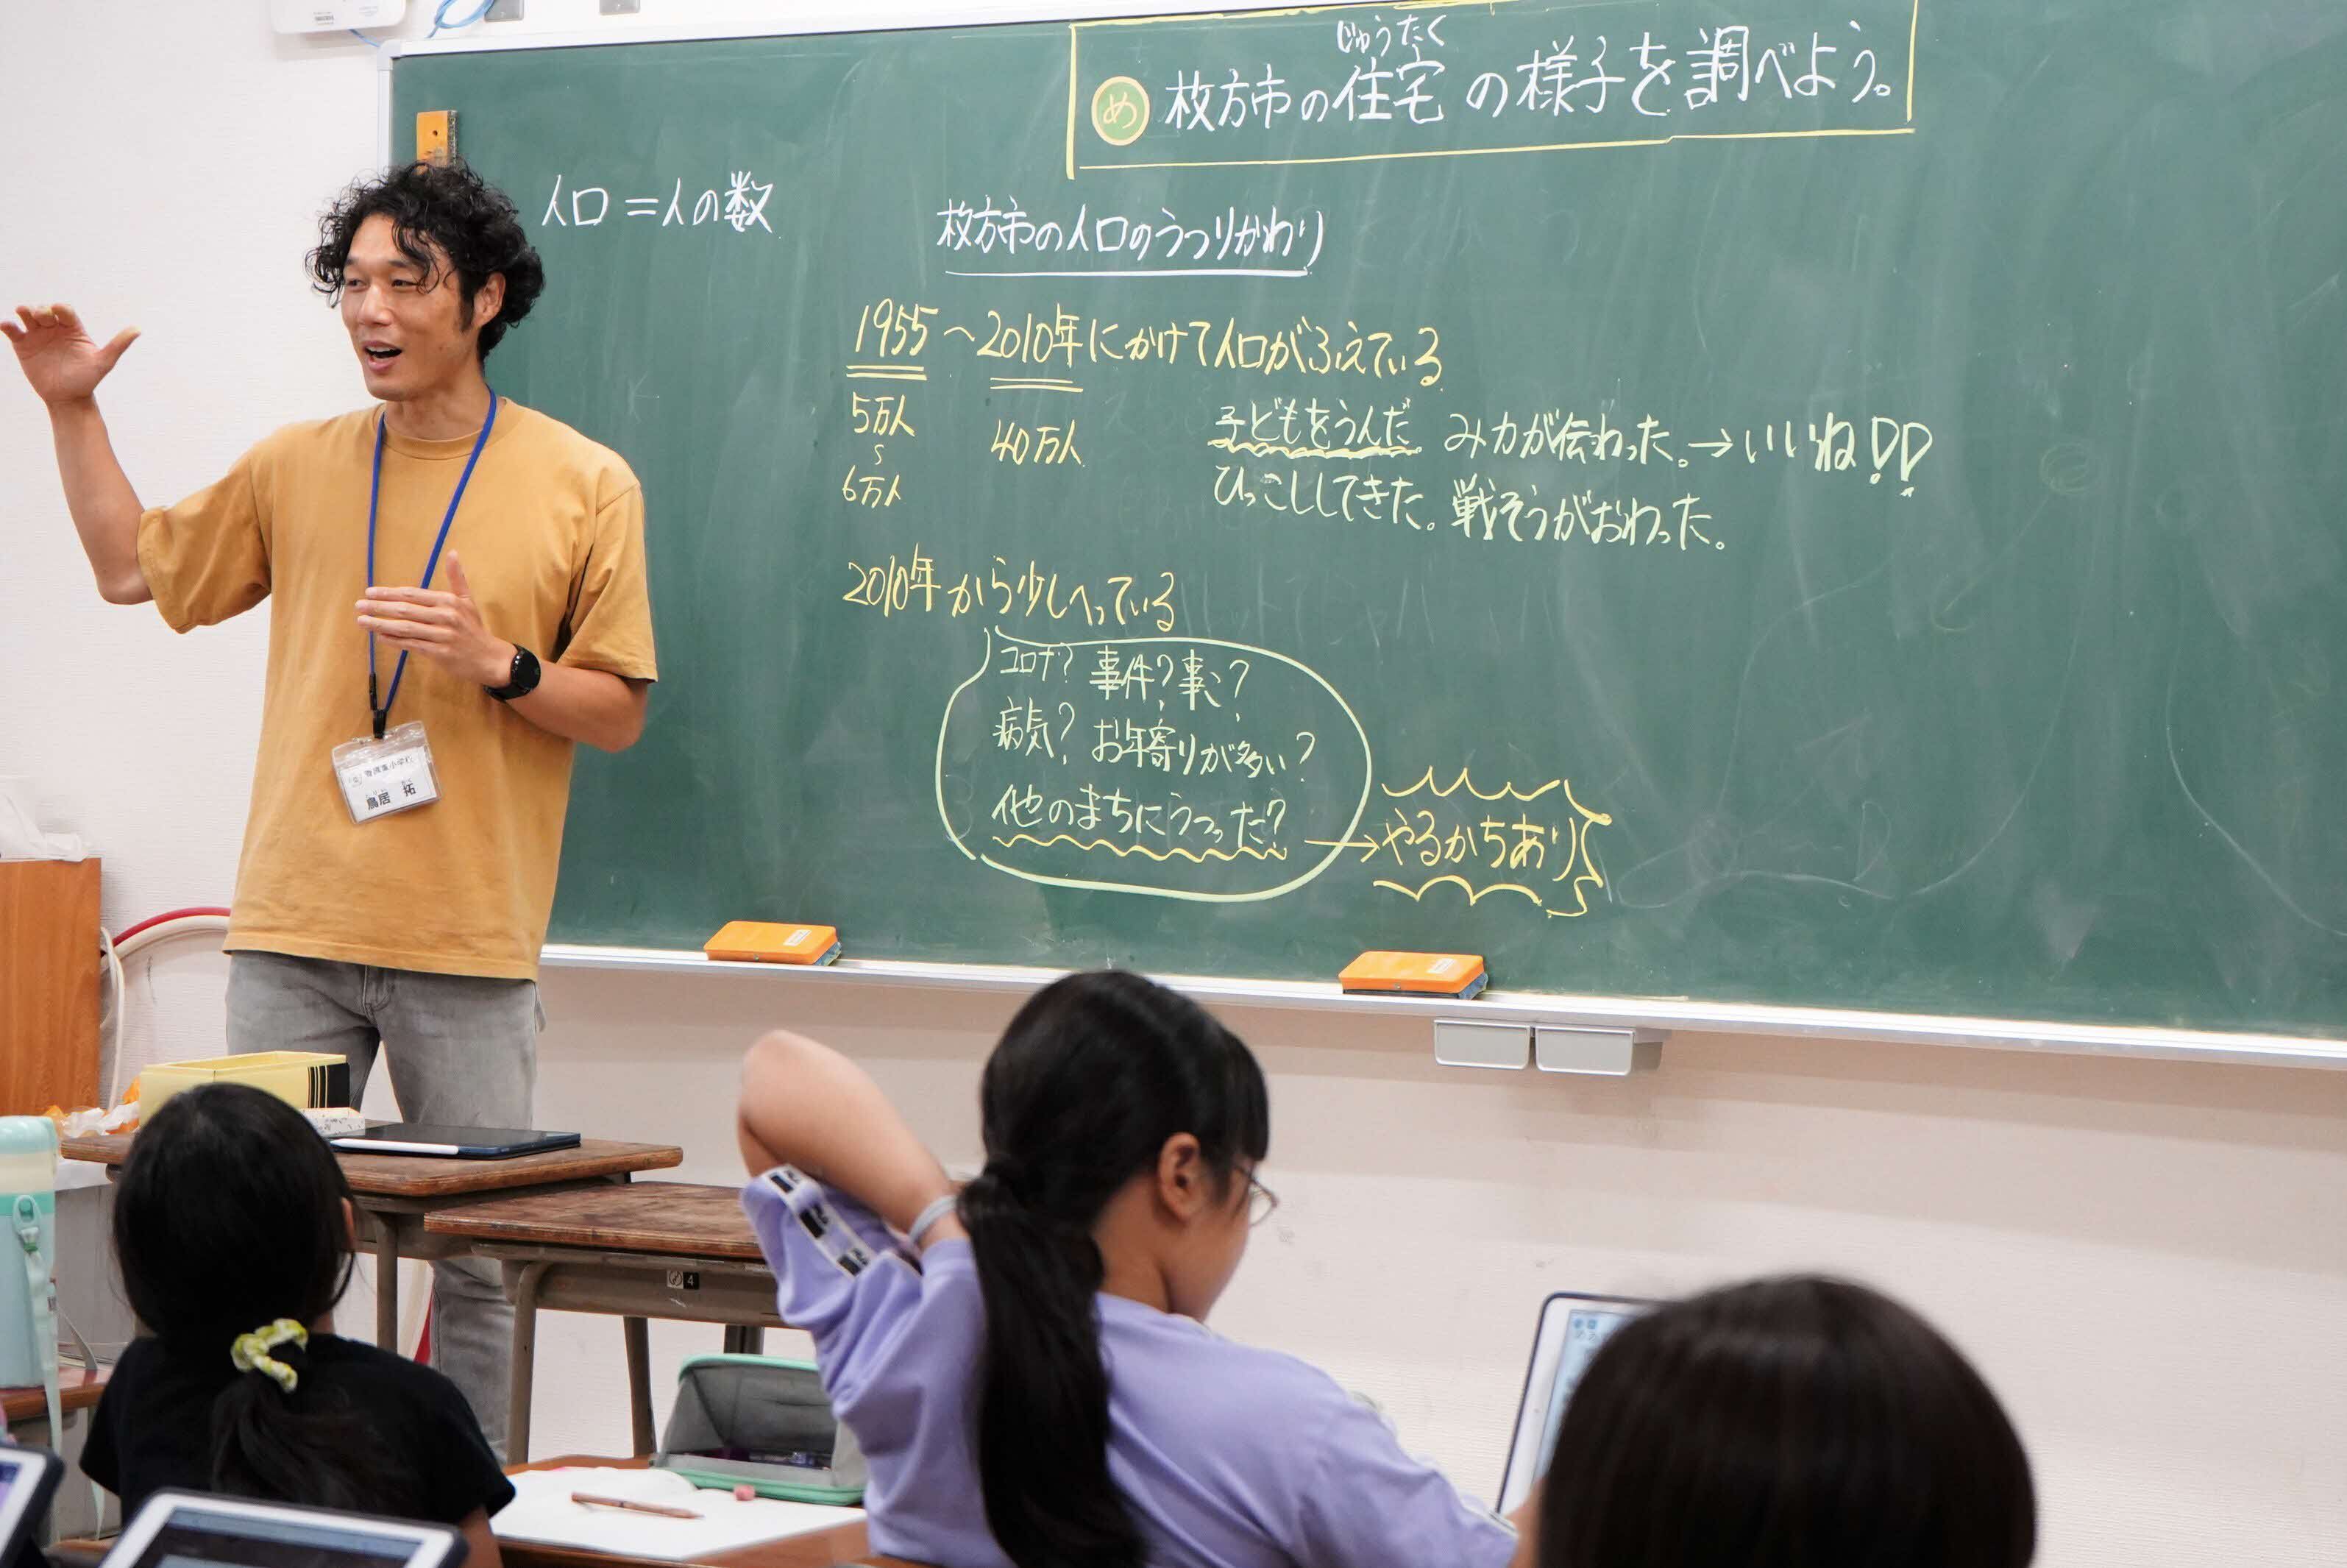 じゅうたく
め 枚方市の住宅の様子を調べよう。
人口=人の数
枚方市の人口のうつりかわり
1955〜2010年にかけて人口がふえている
5万人
〜
6万人
40万人
子どもをうんだ みカが伝わった。→いいね!!
ひっこししてきた。戦そうがおわった。
2010年から少しへっている
コロナ? 事件? 事こ?
病気? お年寄りが多い?
他のまちにうつった?
→やるかちあり
小学校
鳥居 拓
4